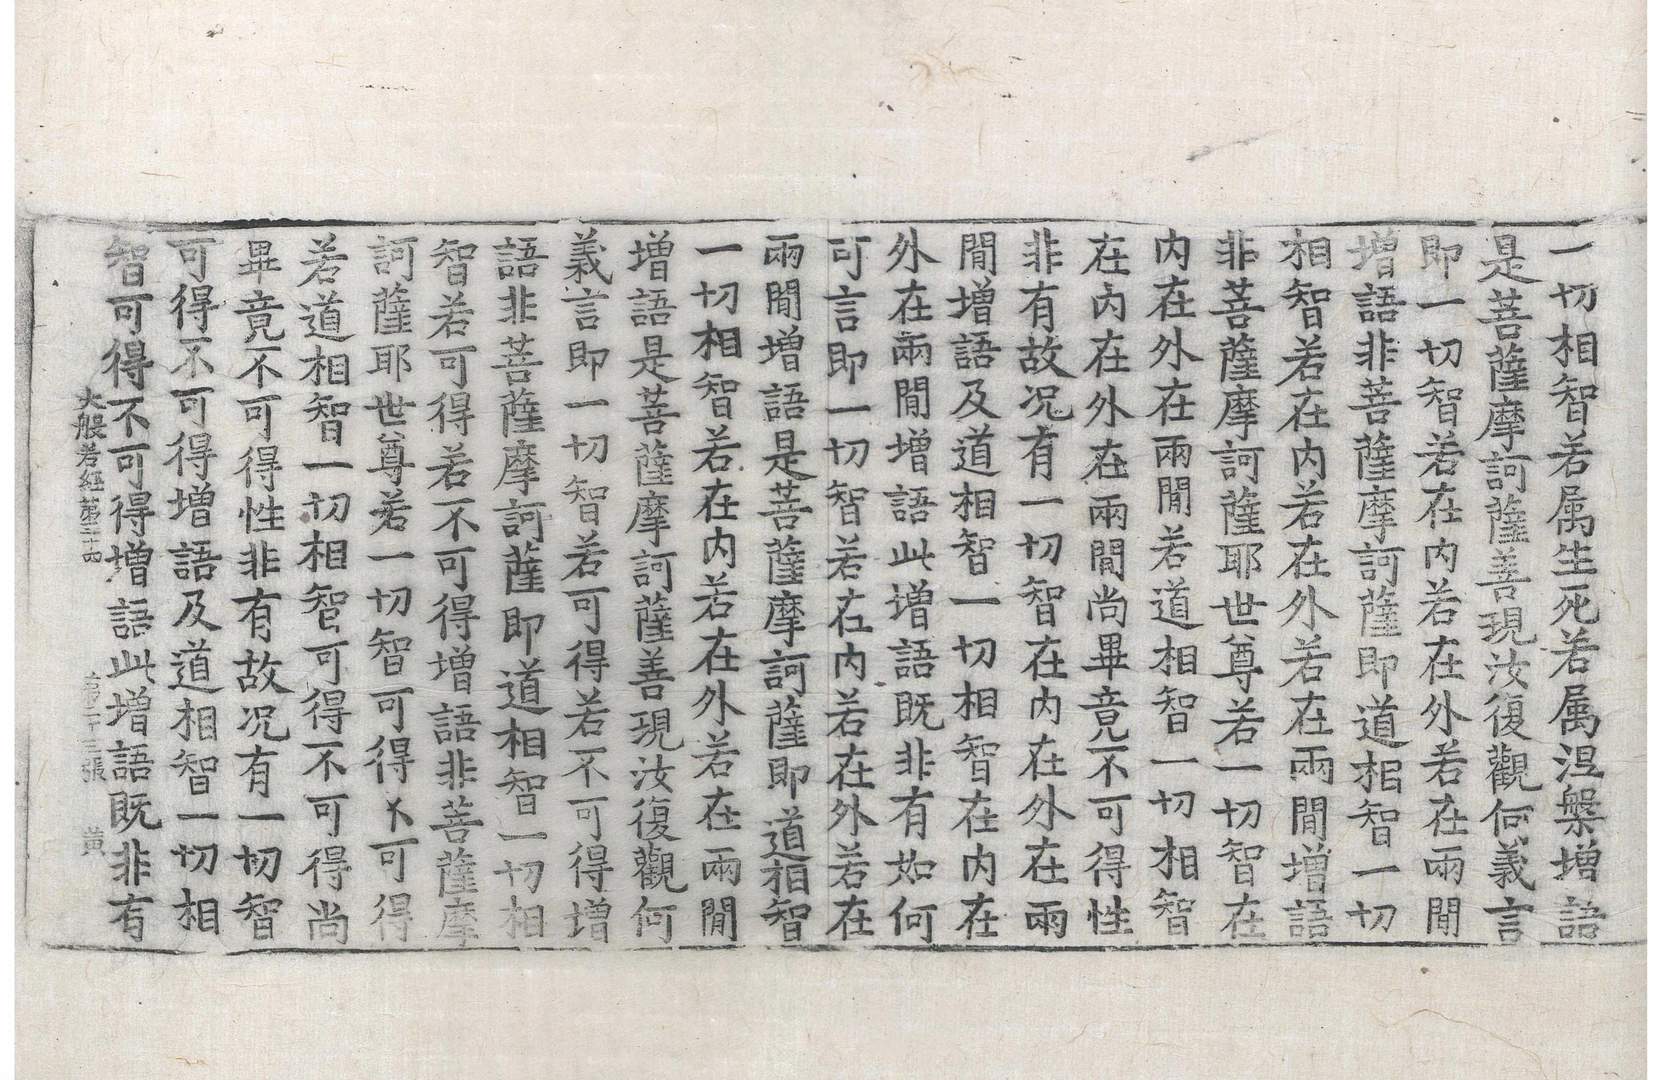 一切相智若属生死若属涅槃增語
是菩薩摩訶薩善現汝復觀何義言
即一切智若在内若在外若在兩閒
增語非菩薩摩訶薩即道相智一切
相智若在内若在外若在兩閒增語
非菩薩摩訶薩耶世尊若一切智在
内在外在兩閒若道相智一切相智
在内在外在兩閒尚畢竟不可得性
非有故况有一切智在内在外在兩
閒增語及道相智一切相智在内在
外在兩閒增語此增語既非有如何
可言即一切智若在内若在外若在
兩閒增語是菩薩摩訶薩即道相智
一切相智若在内若在外若在兩閒
增語是菩薩摩訶薩善現汝復觀何
義言即一切智若可得若不可得增
語非菩薩摩訶薩即道相智一切相
智若可得若不可得增語非菩薩摩
訶薩耶世尊若一切智可得不可得
若道相智一切相智可得不可得尚
畢竟不可得性非有故况有一切智
可得不可得增語及道相智一切相
智可得不可得增語此增語既非有
大般若經第三十四 第二十三張 黄